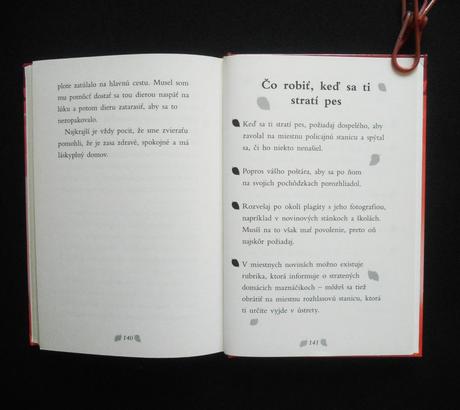 plote zatúlalo na hlavnú cestu. Musel som
mu pomôcť dostať sa tou dierou naspäť na
lúku a potom dieru zatarasiť, aby sa to
nezopakovalo.
Najkrajší je vždy pocit, že sme zvieraťu
pomohli, že je zasa zdravé, spokojné a má
láskyplný domov.
140
Čo robiť, keď sa ti
stratí pes
Keď sa ti stratí pes, požiadaj dospelého, aby
zavolal na miestnu policajnú stanicu a spýtal
sa, či ho niekto nenašiel.
Popros vášho poštára, aby sa po ňom
na svojich pochôdzkach porozhliadol.
Rozvešaj po okolí plagáty s jeho fotografiou,
napríklad v novinových stánkoch a školách.
Musíš na to však mať povolenie, preto oň
najskôr požiadaj.
V miestnych novinách možno existuje
rubrika, ktorá informuje o stratených
domácich maznáčikoch – môžeš sa tiež
obrátiť na miestnu rozhlasovú stanicu, ktorá
ti určite vyjde v ústrety.
141